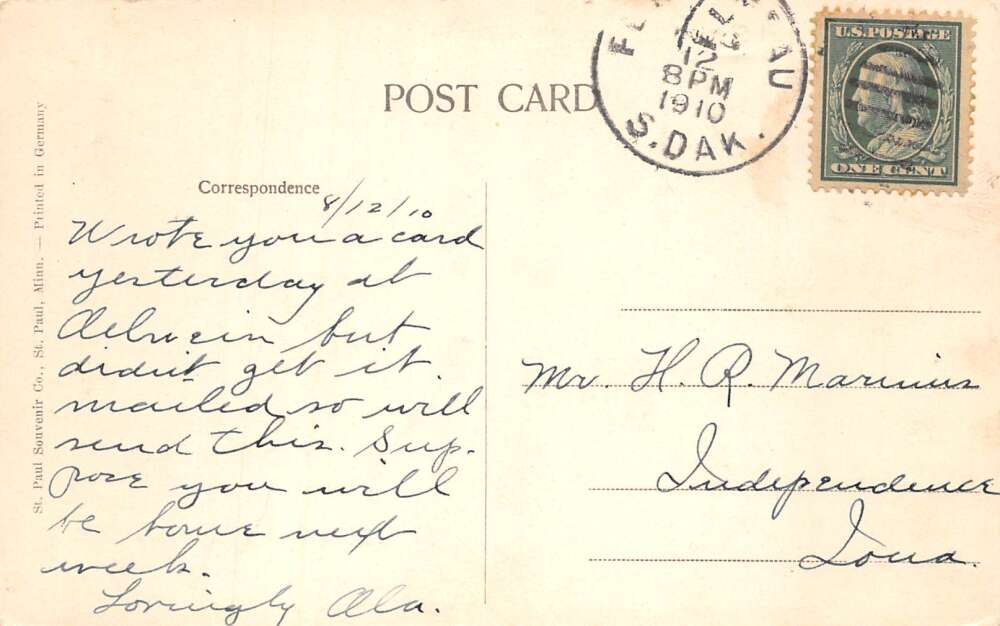 POST CARD
FLANDREAU
12
8 PM
1910
S. DAK.
U.S. POSTAGE
ONE CENT
St. Paul Souvenir Co., St. Paul, Minn. — Printed in Germany
Correspondence
8/12/10
Wrote you a card
yesterday at
Oelwein but
didn't get it
mailed so will
send this. Sup-
pose you will
be home next
week.
Lovingly Ola.
Mr. H. R. Marinus
Independence
Iowa.